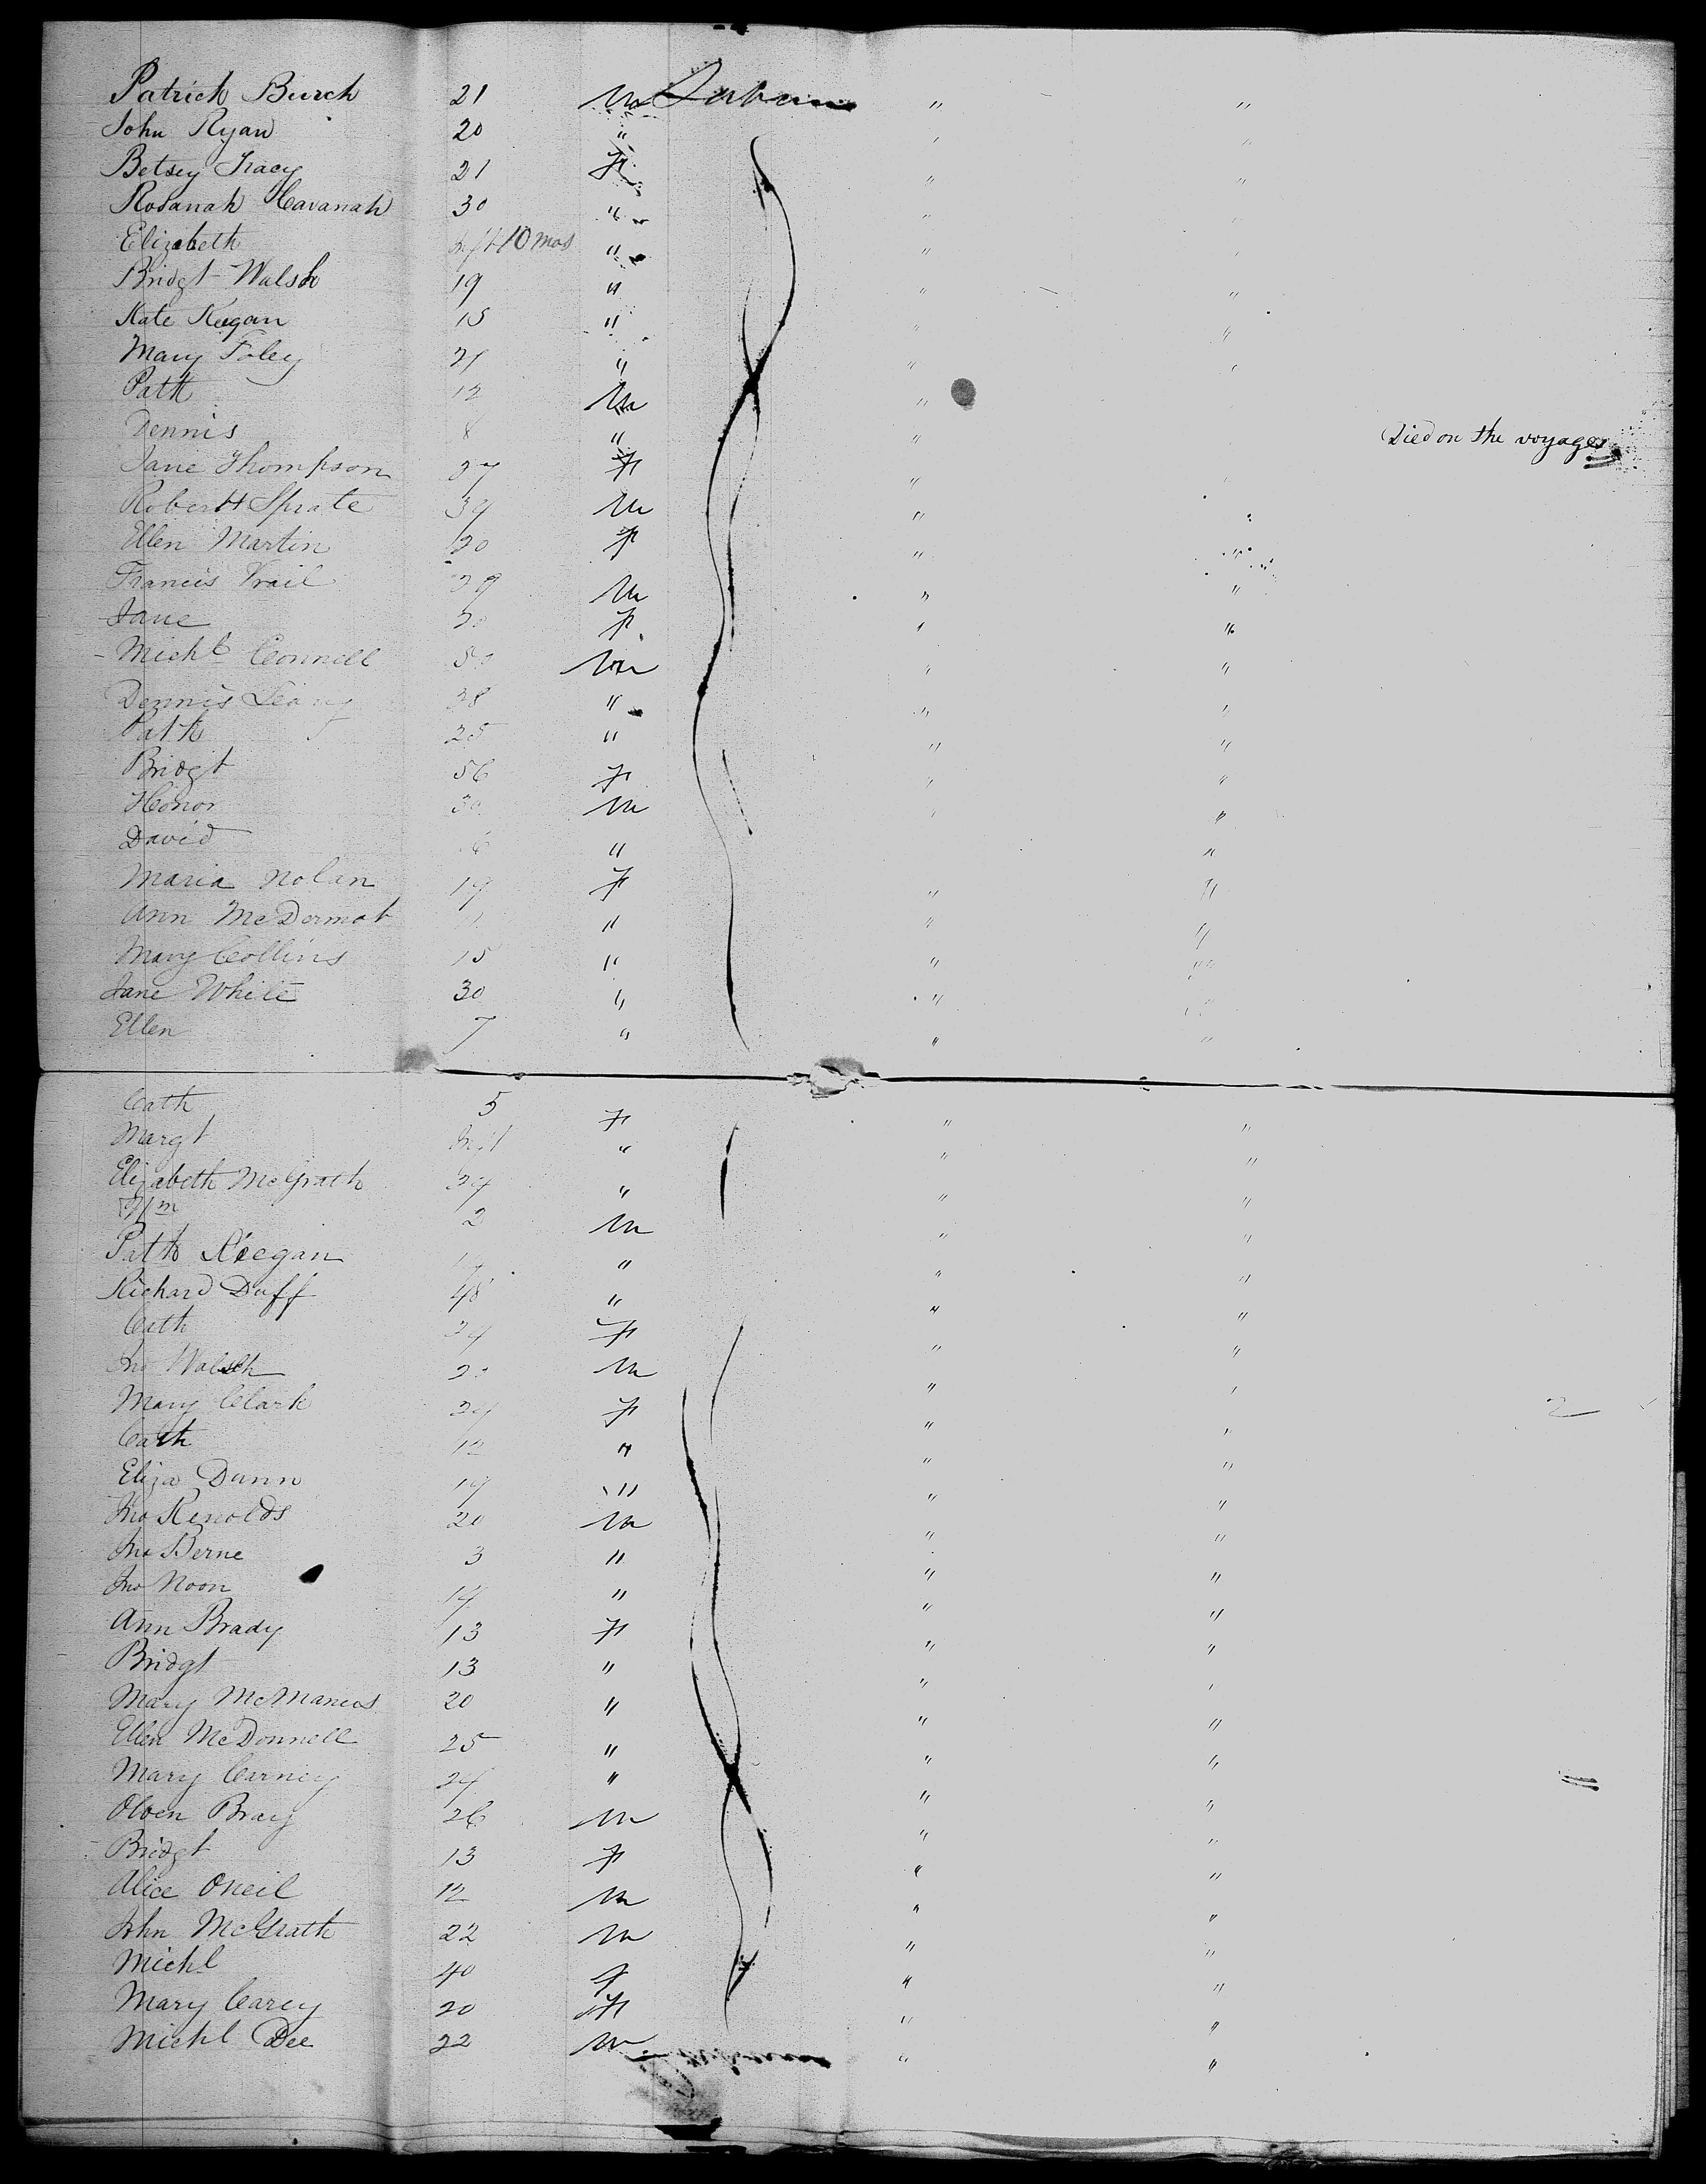 Patrick Burch 21 m Labour " "
John Ryan 20 " " "
Betsey Tracy 21 F " "
Rosanah Cavanah 30 " " "
Elizabeth Inft 10 mos " " "
Bridgt Walsh 19 " " "
Kate Keegan 15 " " "
Mary Foley 21 " " "
Patk 12 m "
Dennis 8 " " Died on the voyage
Jane Thompson 27 F " "
Robert Sprate 39 m "
Ellen Martin 30 F " "
Francis Vrail 39 m " "
Jane 30 F " "
Michl Connell 50 m " "
Dennis Leary 38 " " "
Patk 25 " " "
Bridgt 56 F " "
Honor 30 m " "
David 6 " "
Maria Nolan 19 F " "
Ann McDermot " " "
Mary Collins 15 " " "
Jane White 30 " " "
Ellen 7 " " "
Cath 5 F " "
Margt Inft " " "
Elizabeth McGrath 34 " " "
Wm 2 m " "
Patk Keegan " " "
Richard Duff 48 " " "
Cath 34 F " "
Jno Walsh m " "
Mary Clark 24 F " " 2
Cath 12 " " "
Eliza Dunn 19 " " "
Jno Renolds 20 m " "
Jno Berne 3 " " "
Jno Noon 14 " " "
Ann Brady 13 F " "
Bridgt 13 " " "
Mary McManus 20 " " "
Ellen McDonnell 25 " " "
Mary Carney 24 " " "
Owen Bray 26 m " "
Bridgt 13 F " "
Alice Oneil 12 m " "
John McGrath 22 m " "
Michl 40 F " "
Mary Carey 20 F " "
Michl Dee 22 m " "